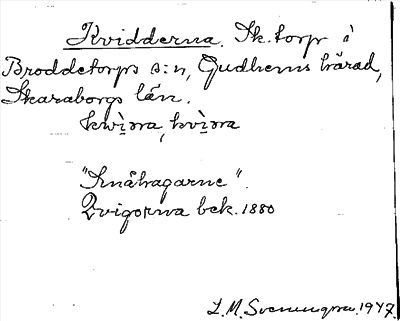 Kvidderna. Sk. torp i
Broddetorps s:n, Gudhems härad,
Skaraborgs län.
kwìrra, kvìrra
"Småhagarne".
Qvigorna bek. 1880
L.M. Svenungsson. 1947.